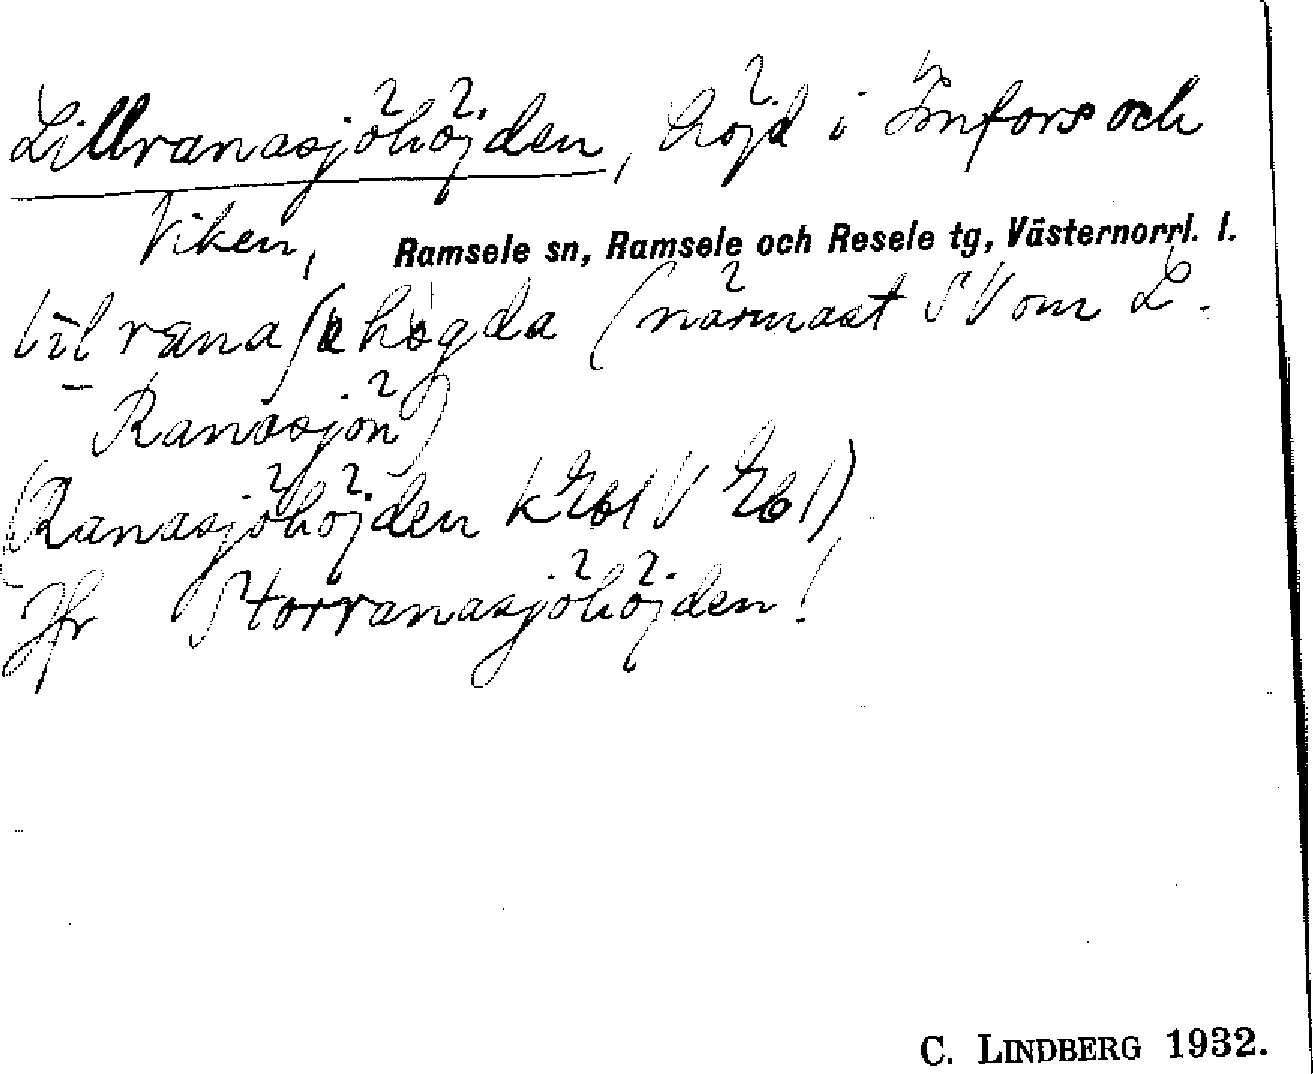 Lillranasjöhöjden, höjd i Imfors och
Viken, Ramsele sn, Ramsele och Resele tg, Västernorrl. l.
(närmast SV om L.
Ranasjön)
(Ranasjöhöjden
Jfr Storranasjöhöjden!
C. LINDBERG 1932.